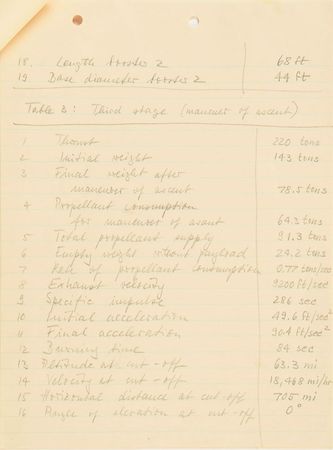 18. Length booster 2 68 ft
19. Base diameter booster 2 44 ft
Table 3: Third stage (maneuver of ascent)
1 Thrust 220 tons
2 Initial weight 143 tons
3 Final weight after
maneuver of ascent 78.5 tons
4 Propellant consumption
for maneuver of ascent 64.3 tons
5 Total propellant supply 91.3 tons
6 Empty weight without payload 24.2 tons
7 Rate of propellant consumption 0.77 tons/sec
8 Exhaust velocity 9200 ft/sec
9 Specific impulse 286 sec
10 Initial acceleration 49.6 ft/sec²
11 Final acceleration 90.4 ft/sec²
12 Burning time 84 sec
13 Altitude at cut-off 63.3 mi
14 Velocity at cut-off 18,468 mi/hr
15 Horizontal distance at cut-off 705 mi
16 Angle of elevation at cut-off 0°